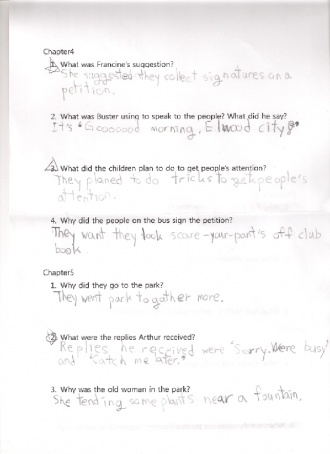 Chapter4
1. What was Francine's suggestion?
She suggested they collect signatures on a
petition.
2. What was Buster using to speak to the people? What did he say?
It's "Gooooood morning, Elwood city!"
3. What did the children plan to do to get people's attention?
They planed to do tricks to get people's
attention.
4. Why did the people on the bus sign the petition?
They want they took scare-your-pant's off club
book.
Chapter5
1. Why did they go to the park?
They went park to gather more.
2. What were the replies Arthur received?
Replies he received were "Sorry. Were busy"
and "Catch me later."
3. Why was the old woman in the park?
She tending some plants near a fountain.